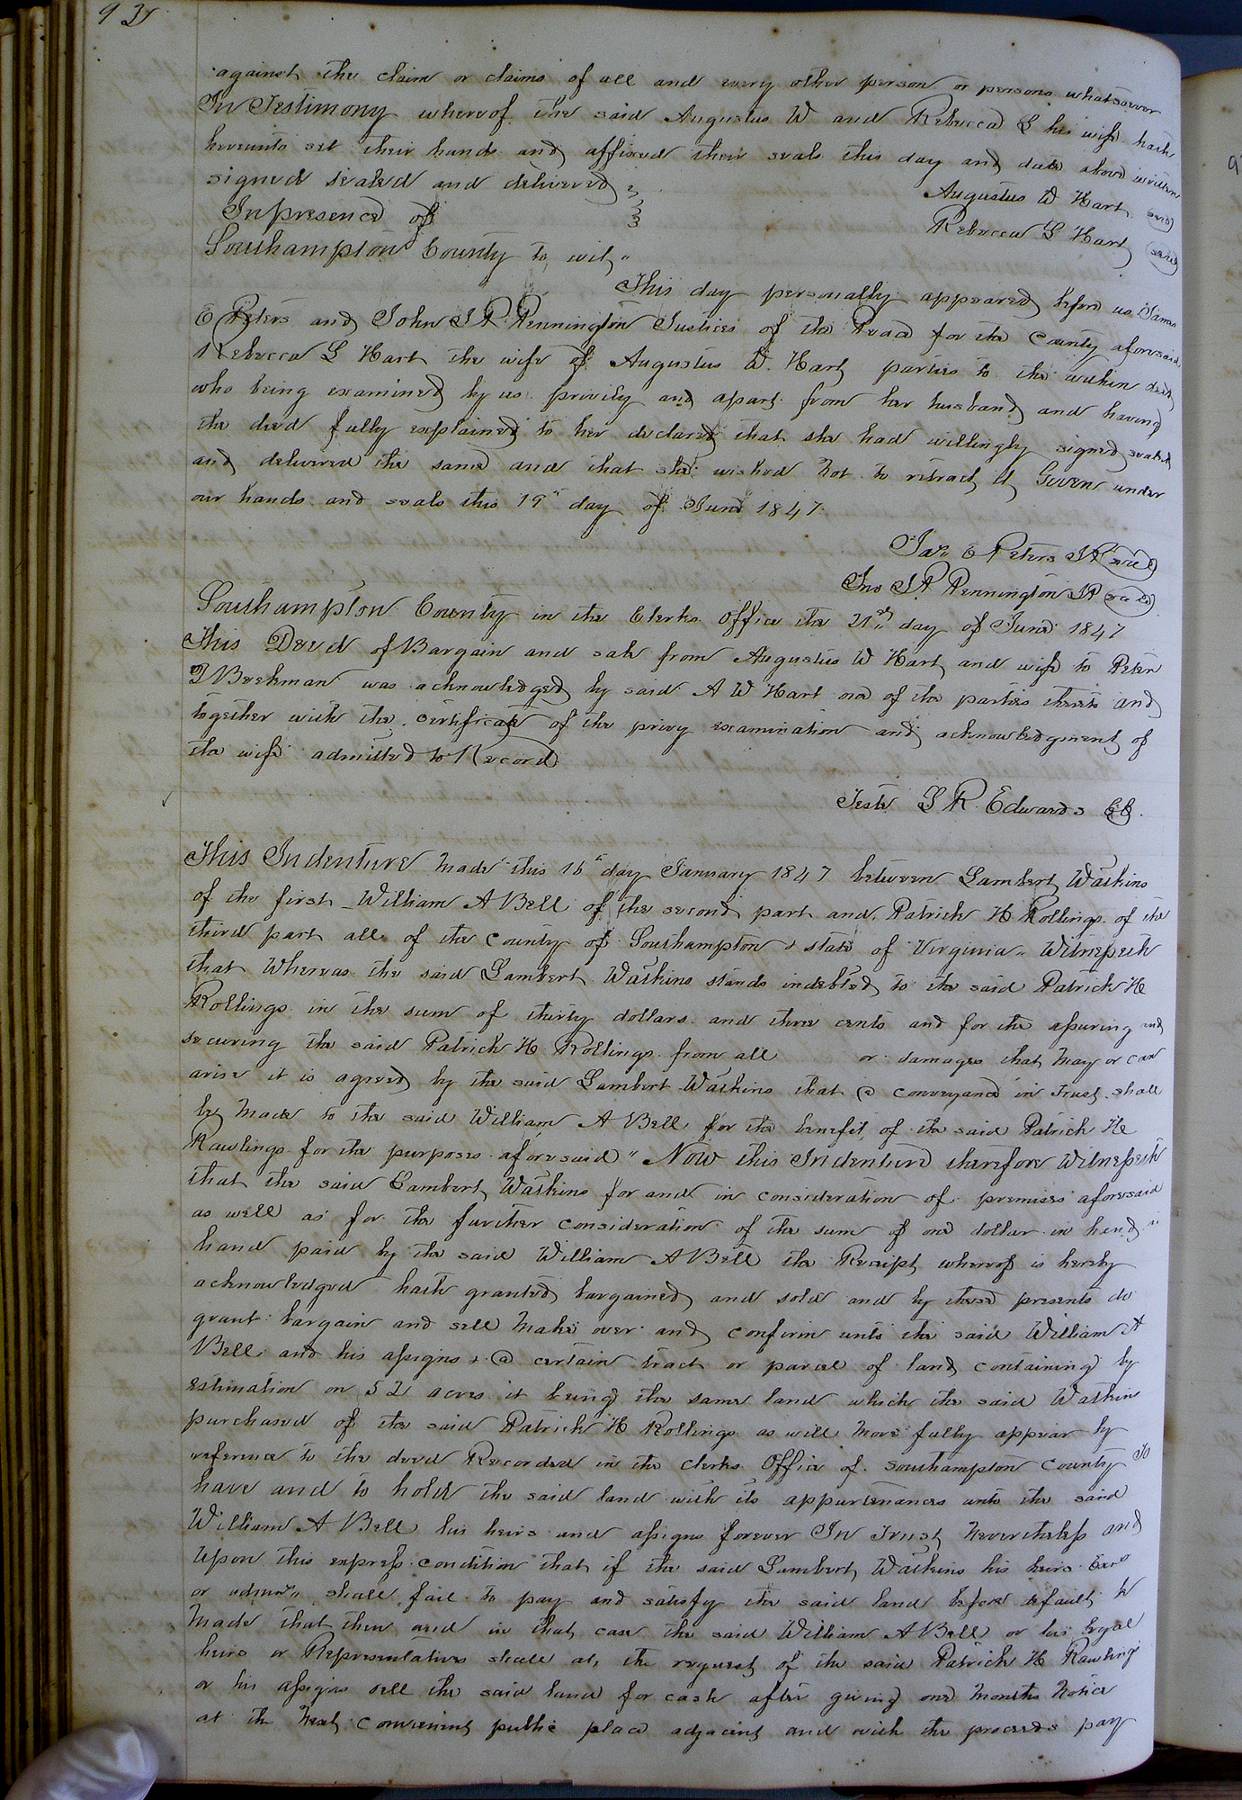 against the claim or claims of all and every other person or persons whatsoever
In Testimony whereof the said Augustus W and Rebecca L his wife hath
hereunto set their hands and affixed their seals this day and date above written
signed sealed and delivered Augustus W Hart seal
In presence of Rebecca L Hart seal
Southampton County to wit,
This day personally appeared before us James
E Peters and John I P Pennington Justices of the Peace for the County aforesaid
Rebecca L Hart the wife of Augustus W. Hart parties to the within deed
who being examined by us privily and apart from her husband and having
the deed fully explained to her declared that she had willingly signed sealed
and delivered the same and that she wished not to retract it Given under
our hands and seals this 19th day of June 1847
Jas E Peters JP seal
Jno I P Pennington JP seal
Southampton County in the Clerks Office the 21st day of June 1847
This Deed of Bargain and sale from Augustus W Hart and wife to Peter
Beekman was acknowledged by said A W Hart one of the parties thereto and
together with the certificate of the privy examination and acknowledgment of
the wife admitted to Record
Teste L R Edwards CC.
This Indenture made this 16th day January 1847 between Lambert Watkins
of the first William A Bell of the second part and Patrick H Rollings of the
third part all of the county of Southampton & state of Virginia Witnesseth
that Whereas the said Lambert Watkins stands indebted to the said Patrick H
Rollings in the sum of thirty dollars and three cents and for the assuring and
securing the said Patrick H Rollings from all or damages that may or can
arise it is agreed by the said Lambert Watkins that a conveyance in Trust shall
be made to the said William A Bell for the benefit of the said Patrick H
Rawlings for the purposes aforesaid" Now this Indenture therefore Witnesseth
that the said Lambert Watkins for and in consideration of premises aforesaid
as well as for the further consideration of the sum of one dollar in hend
hand paid by the said William A Bell the Receipt whereof is hereby
acknowledged hath granted bargained and sold and by these presents do
grant bargain and sell make over and confirm unto the said William A
Bell and his assigns a certain tract or parcel of land containing by
estimation on 52 acres it being the same land which the said Watkins
purchased of the said Patrick H Rollings as will more fully appear by
reference to the deed Recorded in the clerks Office of Southampton County To
have and to hold the said land with its appurtenances unto the said
William A Bell his heirs and assigns forever In Trust Nevertheless and
upon this express condition that if the said Lambert Watkins his heirs Exrs
or admrs shall fail to pay and satisfy the said land before default be
made that then and in that case the said William A Bell or his legal
heirs or Representatives shall at the request of the said Patrick H Rawlings
or his assigns sell the said land for cash after giving one months Notice
at the Next convenient public place adjacent and with the proceeds pay